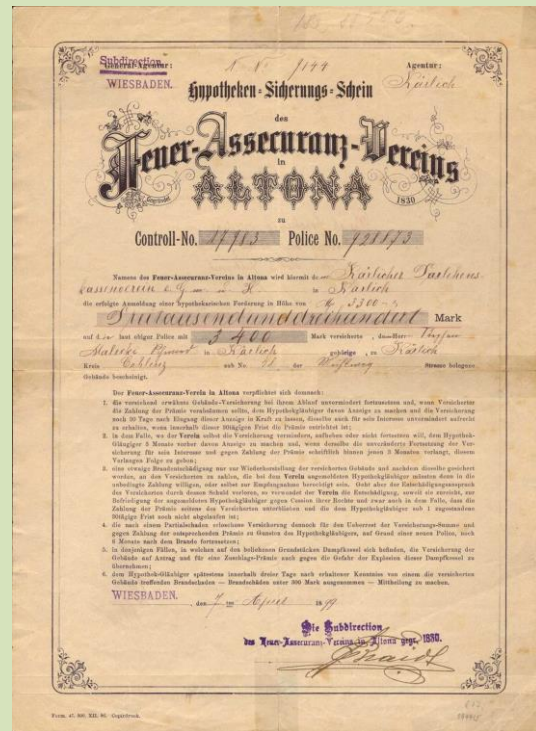 Subdirection
General-Agentur:
Agentur:
WIESBADEN.
Kärlich
Hypotheken-Sicherungs-Schein
des
Feuer-Assecuranz-Vereins
in
Gegründet
ALTONA
1830
zu
Controll-No. Police No.
Namens des Feuer-Assecuranz-Vereins in Altona wird hiermit de Kärlicher Darlehens-
kassenverein e. G. m. u. H. in Kärlich
die erfolgte Anmeldung einer hypothekarischen Forderung in Höhe von M 3300
Dreitausendunddreihundert Mark
auf d laut obiger Police mit 3400 Mark versicherte, de Herrn
in Kärlich gehörige, zu Kärlich
Kreis Coblenz sub No. der Strasse belegene
Gebäude bescheinigt.
Der Feuer-Assecuranz-Verein in Altona verpflichtet sich demnach:
1. die vorstehend erwähnte Gebäude-Versicherung bei ihrem Ablauf unvermindert fortzusetzen und, wenn Versicherter
die Zahlung der Prämie verabsäumen sollte, dem Hypothekgläubiger davon Anzeige zu machen und die Versicherung
noch 30 Tage nach Eingang dieser Anzeige in Kraft zu lassen, dieselbe auch für sein Interesse unvermindert aufrecht
zu erhalten, wenn innerhalb dieser 30tägigen Frist die Prämie entrichtet ist;
2. in dem Falle, wo der Verein selbst die Versicherung vermindern, aufheben oder nicht fortsetzen will, dem Hypothek-
Gläubiger 3 Monate vorher davon Anzeige zu machen und, wenn derselbe die unveränderte Fortsetzung der Ver-
sicherung für sein Interesse und gegen Zahlung der Prämie schriftlich binnen jenen 3 Monaten verlangt, diesem
Verlangen Folge zu geben;
3. eine etwaige Brandentschädigung nur zur Wiederherstellung der versicherten Gebäude und nachdem dieselbe gesichert
worden, an den Versicherten zu zahlen, die bei dem Verein angemeldeten Hypothekgläubiger müssten denn in die
unbedingte Zahlung willigen, oder selbst zur Empfangnahme berechtigt sein. Geht aber der Entschädigungsanspruch
des Versicherten durch dessen Schuld verloren, so verwendet der Verein die Entschädigung, soweit sie zureicht, zur
Befriedigung der angemeldeten Hypothekgläubiger gegen Cession ihrer Rechte und zwar auch in dem Falle, dass die
Zahlung der Prämie seitens des Versicherten unterblieben und die dem Hypothekgläubiger sub 1 zugestandene
30tägige Frist noch nicht abgelaufen ist;
4. die nach einem Partialschaden erloschene Versicherung dennoch für den Ueberrest der Versicherungs-Summe und
gegen Zahlung der entsprechenden Prämie zu Gunsten des Hypothekgläubigers, auf Grund einer neuen Police, noch
6 Monate nach dem Brande fortzusetzen;
5. in denjenigen Fällen, in welchen auf den beliehenen Grundstücken Dampfkessel sich befinden, die Versicherung der
Gebäude auf Antrag und für eine Zuschlags-Prämie auch gegen die Gefahr der Explosion dieser Dampfkessel zu
übernehmen;
6. dem Hypothek-Gläubiger spätestens innerhalb dreier Tage nach erhaltener Kenntniss von einem die versicherten
Gebäude treffenden Brandschaden — Brandschäden unter 300 Mark ausgenommen — Mittheilung zu machen.
WIESBADEN. , den 7 ten April 1899
Die Subdirection
des Feuer-Assecuranz-Vereins in Altona gegr. 1830.